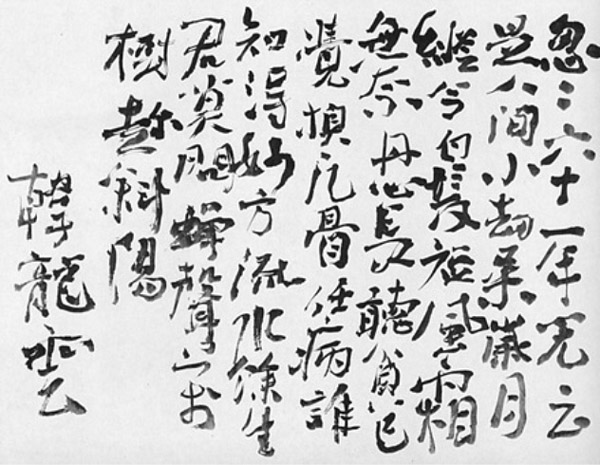 忽々六十一年光云
是人間小劫桑歲月
縱令白髮短風霜
無奈丹心長聽貧已
覺換凡骨任病誰
知得妙方流水餘生
君莫問蟬聲万
樹趁斜陽
韓龍雲